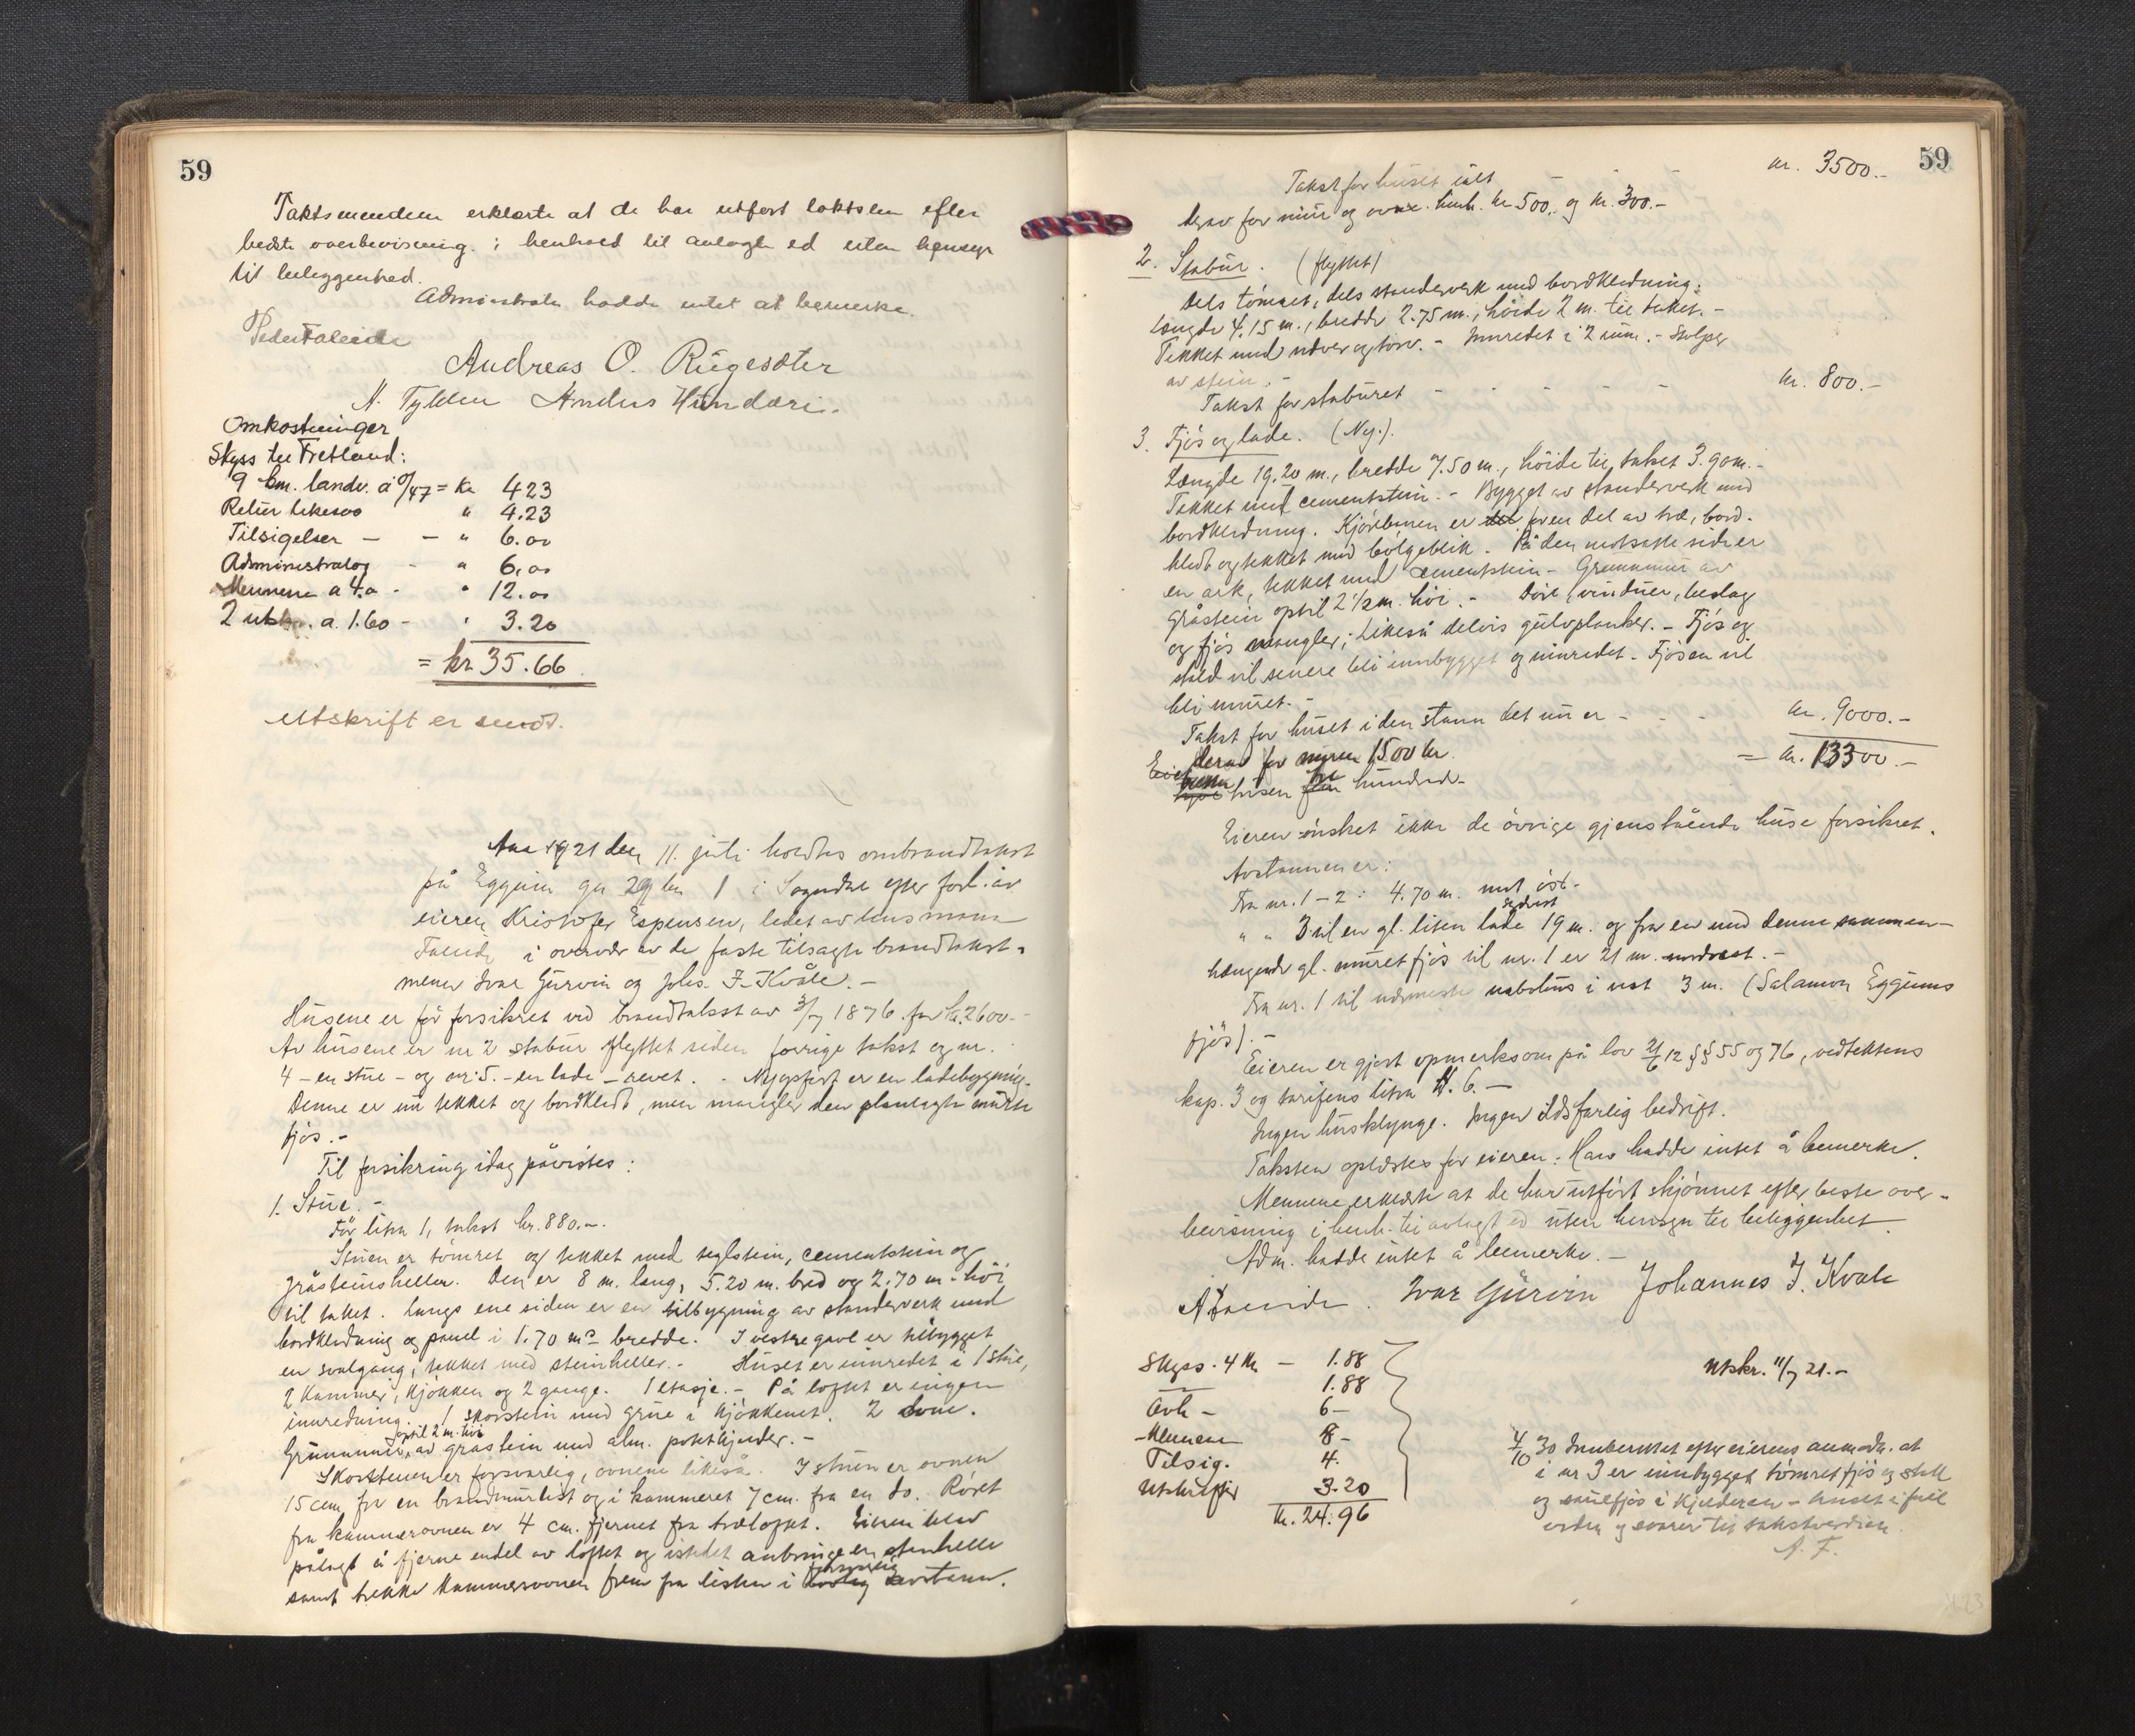 59
Taktsmendene erklærte at de har utført taktsten efter
bedste overbevisning i henhold til avlagte ed uten hensyn
til beleggenhed.
Administrator hadde intet at bemerke.
Peder Faleide
Andreas O. Rûgesæter
N. Tylden Anders Hundere.
Omkostninger
Skyss til Fretland:
9 km. landv. á 0/47 = Kr 4.23
Retur likesaa " 4.23
Tilsigelser – – " 6.00
Administrator - " 6.00
Mennene a 4.0 - " 12.00
2 utskr. a. 1.60 - " 3.20
= kr 35.66
Utskrift er sendt.
Aar 1921 den 11. juli holdtes ombrandtakst
på Eggum gn 29 bn 1 i Sogndal efter forl. av
eieren Kristofer Espensen, ledet av lensmann
Faleide i overvær av de faste tilsagte brandtakst-
menn Ivar Gurvin og Johs. J. Kvåle. –
Husene er før forsikret ved brandtakst av 3/7 1876 for kr. 2600.-
Av husene er nr 2 stabur flyttet siden forrige takst og nr.
4 – en stue – og nr. 5. – en lade – revet. - Nyopført er en ladebygning.
Denne er nu tekket og bordkledt, men mangler den planlagte murte
fjøs. –
Til forsikring idag påvistes:
1. Stue. –
Før litra 1, takst kr. 880.-.
Stuen er tømret og tekket med teglstein, cementstein og
gråsteinsheller. Den er 8 m. lang, 5.20 m. bred og 2.70 m. høi
til taket. Langs ene siden er en tilbygning av standerverk med
bordkledning og panel i 1.70 m. bredde. I vestre gavl er tilbygget
en svalgang, tekket med steinheller. - Huset er innredet i 1 stue,
2 kammer, kjøkken og 2 gange. 1 etasje. – På loftet er ingen
innredning. 1 skorstein med grue i kjøkkenet. 2 ovne.
optil 2 m. høi
Grunnmur av gråstein med alm. potetkjeller. –
Skorstenen er forsvarlig, ovnene likeså. I stuen er ovnen
15 cm fra en brandmurlist og i kammeret 7 cm. fra en do. Røret
fra kammerovnen er 4 cm. fjernet fra træloftet. Eieren blev
pålagt å fjerne endel av loftet og istedet anbringe en stenhelle
forsvarlig
samt trekke kammerovnen frem fra listen i lovlig avstann.
59
Takst for huset ialt kr. 3500.-
herav for mur og ovne henh. kr 500,- og kr. 300.-
2. Stabur. (flyttet)
Dels tømret, dels standerverk med bordkledning.
Længde 4.15 m., bredde 2.75 m., høide 2 m. til taket. -
Tekket med næver og torv. - Innredet i 2 rum. - Stolper
av stein. -
Takst for staburet - - - - kr. 800.-
3. Fjøs og lade. (Ny.).
Længde 19.20 m., bredde 7.50 m., høide til taket 3.90 m. -
Tekket med cementstein. - Bygget av standerverk med
bordkledning. Kjørebroen er del for en del av træ, bord-
kledt og tekket med bølgeblik. På den motsatte side er
en ark, tekket med cementstein - Grunnmur av
gråstein optil 2 1/2 m. høi. - Døre, vinduer, beslag
og fjøs mangler; likeså delvis gulvplanker. - Fjøs og
stald vil senere bli innbygget og innredet. Fjøsen vil
bli muret. -
Takst for huset i den stann det nu er - - - kr. 9000.-
derav for muren 1500 kr. = kr. 13300.-
tusen tre hundrede.
Eieren ønsket ikke de øvrige gjenstående huse forsikret.
Avstannen er:
Fra nr. 1 – 2: 4.70 m. mot øst.
sydvest
" " 3 til en gl. liten lade 19 m. og fra en med denne sammen-
hængende gl. muret fjøs til nr. 1 er 21 m. nordvest. –
Fra nr. 1 til nærmeste nabohus i vest 3 m. (Salamon Eggums
fjøs). –
Eieren er gjort opmerksom på lov 21/6 12 §§ 55 og 76, vedtektens
kap. 3 og tarifens litra H. 6. –
Ingen husklynge. Ingen ildsfarlig bedrift.
Taksten oplæstes for eieren: Han hadde intet å bemerke.
Mennene erklærte at de har utført skjønnet efter beste over-
bevisning i henh. til avlagt ed uten hensyn til beliggenhet.
Adm. hadde intet å bemerke. –
A Faleide. Ivar Gurvin Johannes J. Kvåle
Skyss. 4 km – 1.88
1.88
Avh – 6 –
Mennene 8 –
Tilsig. 4.
Utskrifter 3.20
kr. 24.96
Utskr. 11/7 21. –
4/10 30 Innberettet efter eierens anmodn. at
i nr 3 er innbygget tømret fjøs og stall
og sauefjøs i kjelderen – huset i full
orden og svarer til takstverdien.
A. F.